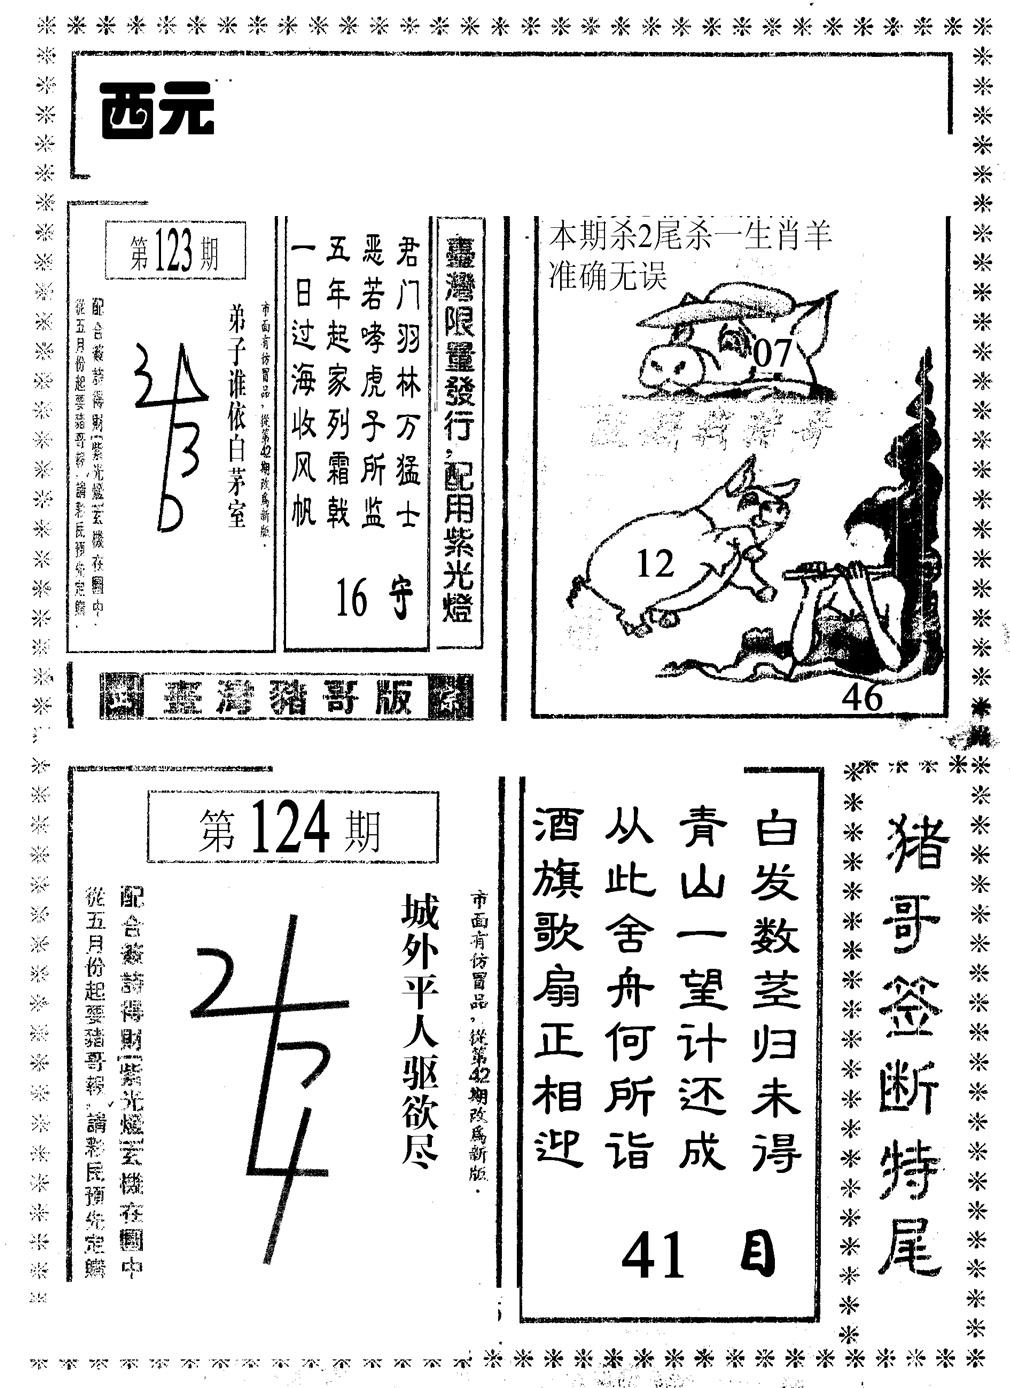 西元
第123期
市面有仿冒品，從第42期改爲新版．
弟子谁依白茅室
配合簽詩得財(紫光燈)玄機在圖中．
從五月份起要豬哥報，請彩民預先定購．
臺灣限量發行，配用紫光燈
君门羽林万猛士
恶若哮虎子所监
五年起家列霜戟
一日过海收风帆
16 守
臺灣豬哥版
本期杀2尾杀一生肖羊
准确无误
07
12
46
第124期
市面有仿冒品，從第42期改爲新版．
城外平人驱欲尽
配合簽詩得財(紫光燈)玄機在圖中
從五月份起要豬哥報，請彩民預先定購
白发数茎归未得
青山一望计还成
从此舍舟何所诣
酒旗歌扇正相迎
41 目
猪哥签断特尾